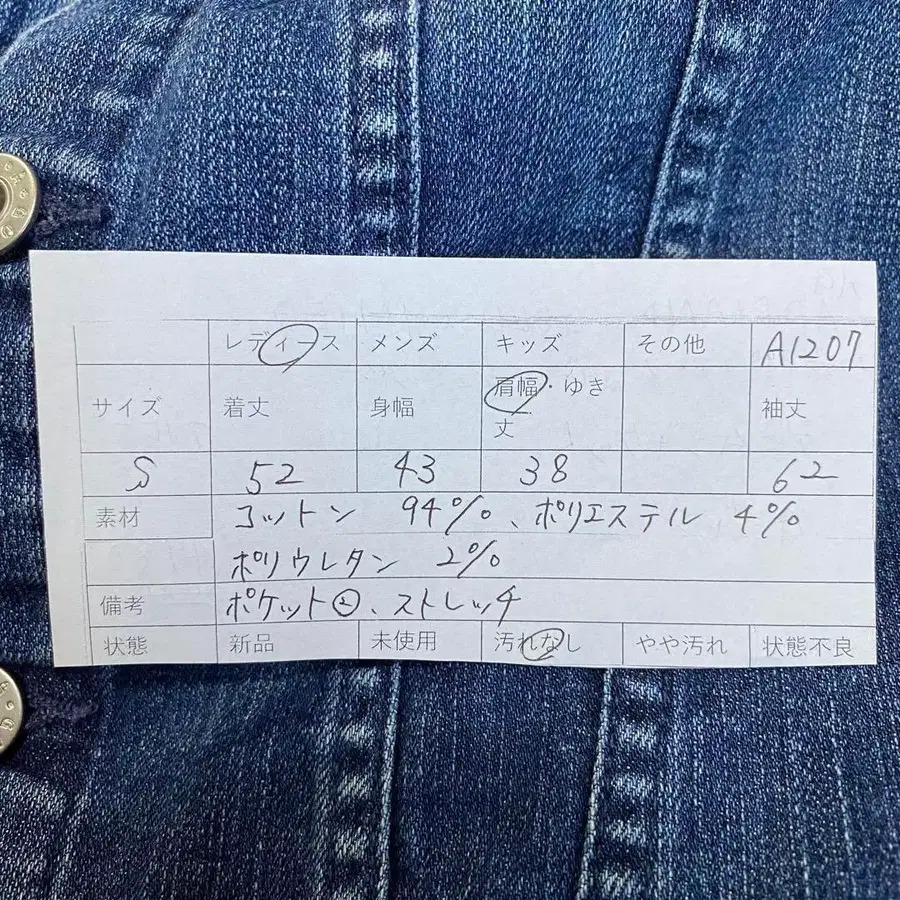 レディース メンズ キッズ その他 A1207
サイズ 着丈 身幅 肩幅・ゆき丈 袖丈
S 52 43 38 62
素材 コットン 94%、ポリエステル 4%
ポリウレタン 2%
備考 ポケット②、ストレッチ
状態 新品 未使用 汚れなし やや汚れ 状態不良